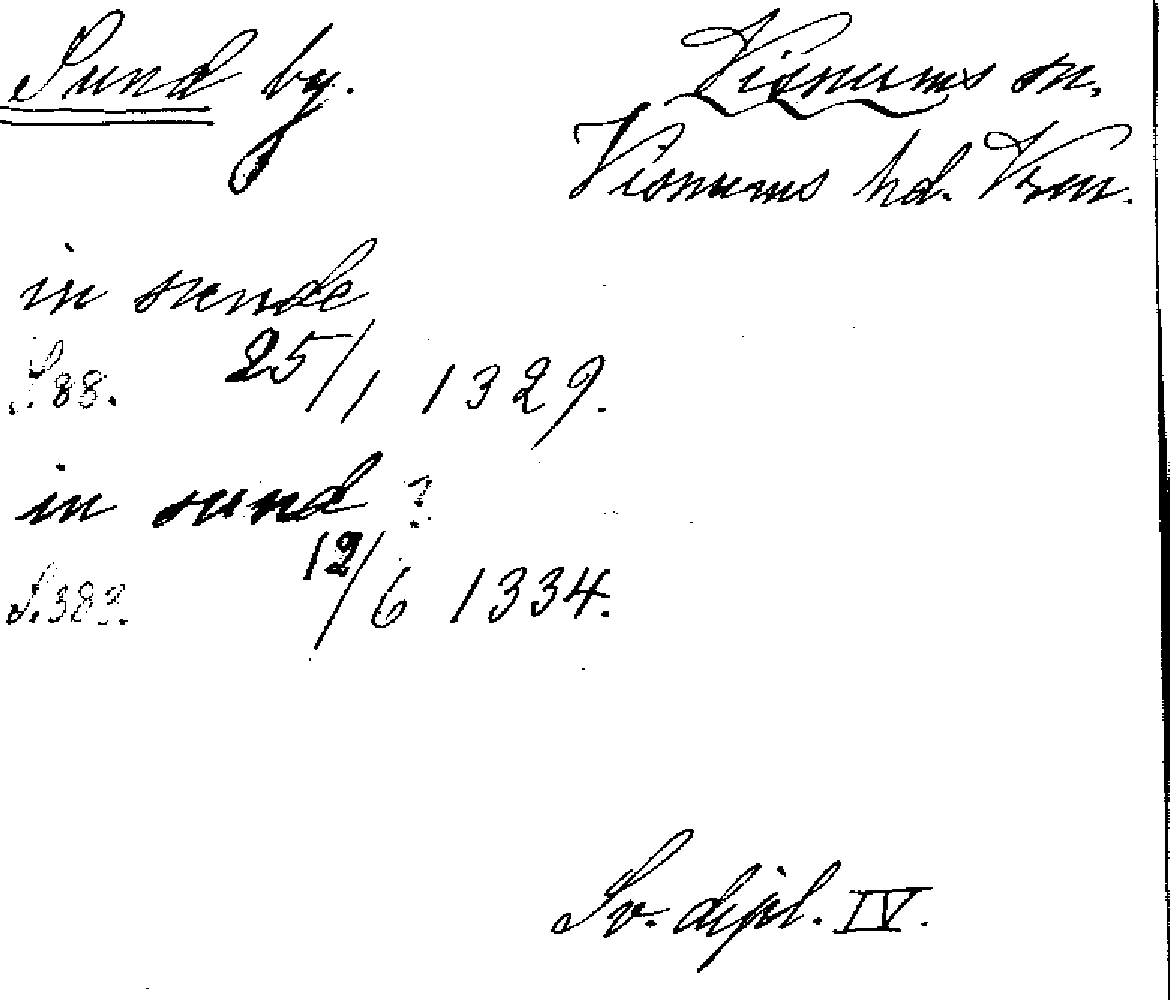 Sund by.
Visnums sn.
Visnums hd. Vrm.
in sunde
S. 88. 25/1 1329.
in sund ?
S. 383. 12/6 1334.
Sv. dipl. IV.